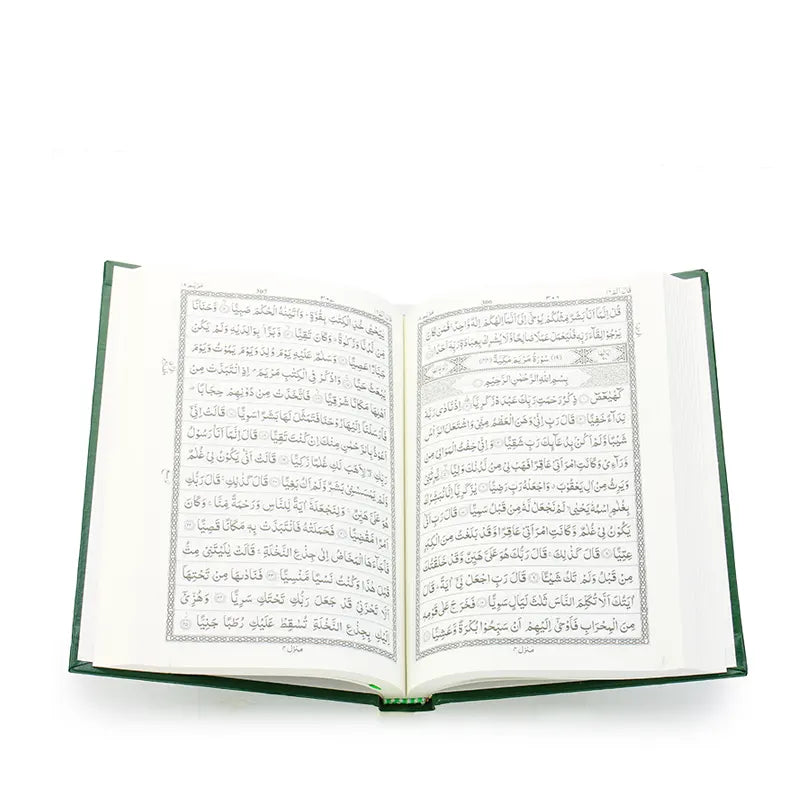 ٣٠٦
306
قُلْ اِنَّمَآ اَنَا بَشَرٌ مِّثْلُكُمْ يُوْحٰٓى اِلَيَّ اَنَّمَآ اِلٰهُكُمْ اِلٰهٌ وَّاحِدٌ ۚ فَمَنْ كَانَ
يَرْجُوْا لِقَآءَ رَبِّهٖ فَلْيَعْمَلْ عَمَلًا صَالِحًا وَّلَا يُشْرِكْ بِعِبَادَةِ رَبِّهٖٓ اَحَدًا
(١٩) سُوْرَةُ مَرْيَمَ مَكِّيَّةٌ (٤٤)
بِسْمِ اللّٰهِ الرَّحْمٰنِ الرَّحِيْمِ
كٓهٰيٰعٓصٓ ۝ ذِكْرُ رَحْمَتِ رَبِّكَ عَبْدَهٗ زَكَرِيَّا ۝ اِذْ نَادٰى رَبَّهٗ
نِدَآءً خَفِيًّا ۝ قَالَ رَبِّ اِنِّيْ وَهَنَ الْعَظْمُ مِنِّيْ وَاشْتَعَلَ الرَّاْسُ
شَيْبًا وَّلَمْ اَكُنْ بِدُعَآئِكَ رَبِّ شَقِيًّا ۝ وَاِنِّيْ خِفْتُ الْمَوَالِيَ مِنْ
وَّرَآءِيْ وَكَانَتِ امْرَاَتِيْ عَاقِرًا فَهَبْ لِيْ مِنْ لَّدُنْكَ وَلِيًّا ۝ يَّرِثُنِيْ
وَيَرِثُ مِنْ اٰلِ يَعْقُوْبَ وَاجْعَلْهُ رَبِّ رَضِيًّا ۝ يٰزَكَرِيَّآ اِنَّا نُبَشِّرُكَ
بِغُلٰمِ اسْمُهٗ يَحْيٰى لَمْ نَجْعَلْ لَّهٗ مِنْ قَبْلُ سَمِيًّا ۝ قَالَ رَبِّ اَنّٰى
يَكُوْنُ لِيْ غُلٰمٌ وَّكَانَتِ امْرَاَتِيْ عَاقِرًا وَّقَدْ بَلَغْتُ مِنَ الْكِبَرِ
عِتِيًّا ۝ قَالَ كَذٰلِكَ ۚ قَالَ رَبُّكَ هُوَ عَلَيَّ هَيِّنٌ وَّقَدْ خَلَقْتُكَ
مِنْ قَبْلُ وَلَمْ تَكُ شَيْئًا ۝ قَالَ رَبِّ اجْعَلْ لِّيْٓ اٰيَةً ؕ قَالَ
اٰيَتُكَ اَلَّا تُكَلِّمَ النَّاسَ ثَلٰثَ لَيَالٍ سَوِيًّا ۝ فَخَرَجَ عَلٰى قَوْمِهٖ
مِنَ الْمِحْرَابِ فَاَوْحٰٓى اِلَيْهِمْ اَنْ سَبِّحُوْا بُكْرَةً وَّعَشِيًّا ۝
منزل ٤
مريم ١٩
307
يٰيَحْيٰى خُذِ الْكِتٰبَ بِقُوَّةٍ ؕ وَاٰتَيْنٰهُ الْحُكْمَ صَبِيًّا ۝ وَّحَنَانًا
مِّنْ لَّدُنَّا وَزَكٰوةً ؕ وَكَانَ تَقِيًّا ۝ وَّبَرًّا بِوَالِدَيْهِ وَلَمْ يَكُنْ
جَبَّارًا عَصِيًّا ۝ وَسَلٰمٌ عَلَيْهِ يَوْمَ وُلِدَ وَيَوْمَ يَمُوْتُ وَيَوْمَ
يُبْعَثُ حَيًّا ۝ وَاذْكُرْ فِي الْكِتٰبِ مَرْيَمَ ۘ اِذِ انْتَبَذَتْ مِنْ
اَهْلِهَا مَكَانًا شَرْقِيًّا ۝ فَاتَّخَذَتْ مِنْ دُوْنِهِمْ حِجَابًا
فَاَرْسَلْنَآ اِلَيْهَا رُوْحَنَا فَتَمَثَّلَ لَهَا بَشَرًا سَوِيًّا ۝ قَالَتْ اِنِّيْٓ
اَعُوْذُ بِالرَّحْمٰنِ مِنْكَ اِنْ كُنْتَ تَقِيًّا ۝ قَالَ اِنَّمَآ اَنَا رَسُوْلُ
رَبِّكِ ۖ لِاَهَبَ لَكِ غُلٰمًا زَكِيًّا ۝ قَالَتْ اَنّٰى يَكُوْنُ لِيْ غُلٰمٌ
وَّلَمْ يَمْسَسْنِيْ بَشَرٌ وَّلَمْ اَكُ بَغِيًّا ۝ قَالَ كَذٰلِكِ ۚ قَالَ رَبُّكِ
هُوَ عَلَيَّ هَيِّنٌ ۚ وَلِنَجْعَلَهٗٓ اٰيَةً لِّلنَّاسِ وَرَحْمَةً مِّنَّا ۚ وَكَانَ
اَمْرًا مَّقْضِيًّا ۝ فَحَمَلَتْهُ فَانْتَبَذَتْ بِهٖ مَكَانًا قَصِيًّا ۝
فَاَجَآءَهَا الْمَخَاضُ اِلٰى جِذْعِ النَّخْلَةِ ۚ قَالَتْ يٰلَيْتَنِيْ مِتُّ
قَبْلَ هٰذَا وَكُنْتُ نَسْيًا مَّنْسِيًّا ۝ فَنَادٰىهَا مِنْ تَحْتِهَآ
اَلَّا تَحْزَنِيْ قَدْ جَعَلَ رَبُّكِ تَحْتَكِ سَرِيًّا ۝ وَهُزِّيْٓ
اِلَيْكِ بِجِذْعِ النَّخْلَةِ تُسٰقِطْ عَلَيْكِ رُطَبًا جَنِيًّا ۝
منزل ٤